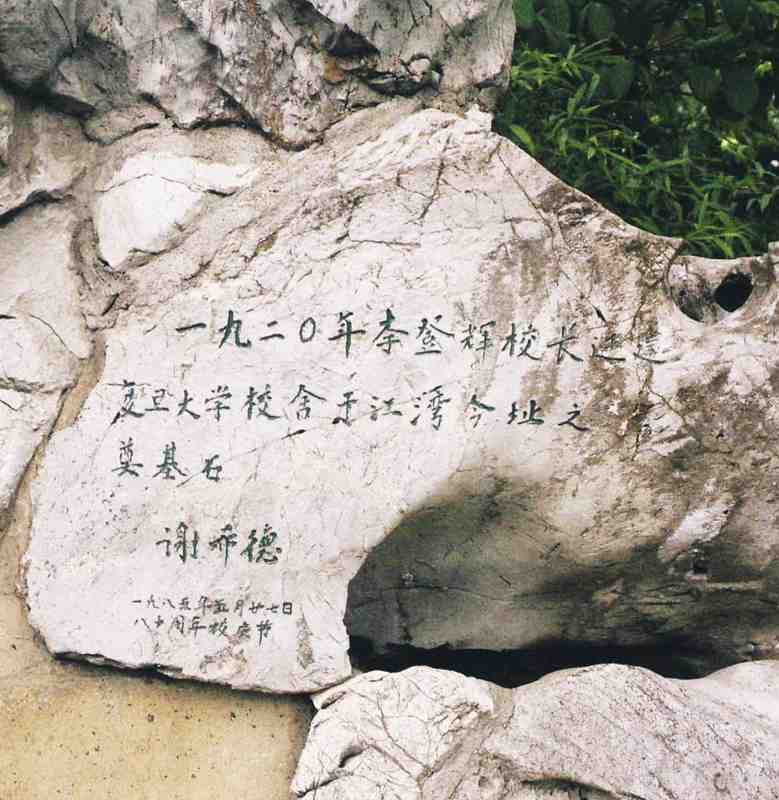 一九二〇年李登辉校长选造
复旦大学校舍于江湾今址之
奠基石
谢希德
一九八五年五月廿七日
八十周年校庆节